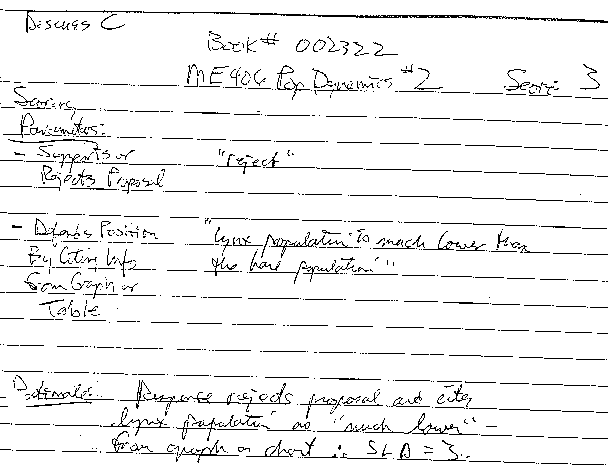 Discuss C
Book # 002322
ME406 Pop Dynamics #2 Score: 3
Scoring
Parameters:
- Supports or "reject"
Rejects Proposal
- Defends Position "lynx population is much lower than
By Citing Info the hare population"
from Graph or
Table
Rationale: Response rejects proposal and cites
lynx population as "much lower" -
from graph or chart ∴ = 3.